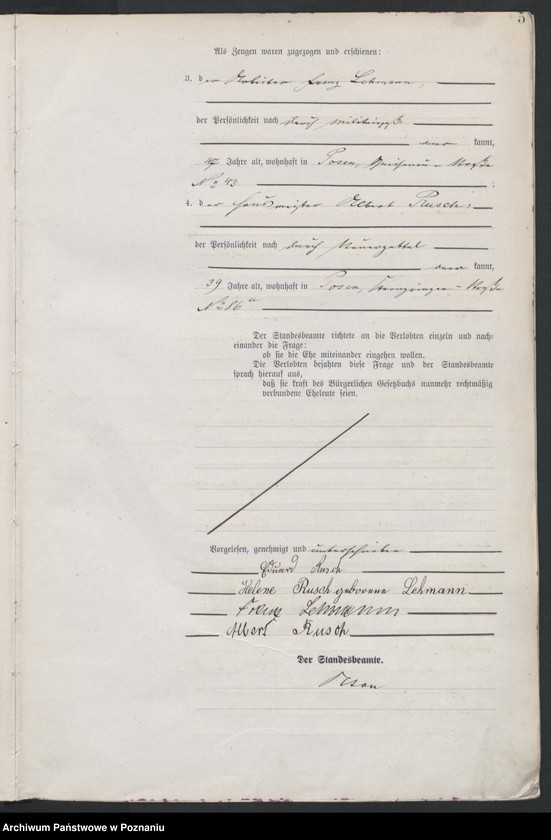 5
Als Zeugen waren zugezogen und erschienen:
3. der Arbeiter Franz Lehmann,
der Persönlichkeit nach durch Militärpaß
kannt,
47 Jahre alt, wohnhaft in Posen, Straße
No 43 ;
4. der Hausmeister Albert Rusch,
der Persönlichkeit nach durch Steuerzettel
kannt,
39 Jahre alt, wohnhaft in Posen, Straße
No 86 a
Der Standesbeamte richtete an die Verlobten einzeln und nach-
einander die Frage:
ob sie die Ehe miteinander eingehen wollen.
Die Verlobten bejahten diese Frage und der Standesbeamte
sprach hierauf aus,
daß sie kraft des Bürgerlichen Gesetzbuchs nunmehr rechtmäßig
verbundene Eheleute seien.
Vorgelesen, genehmigt und unterschrieben
Eduard Rusch
Helene Rusch geborene Lehmann
Franz Lehmann
Albert Rusch
Der Standesbeamte.
Archiwum Państwowe w Poznaniu